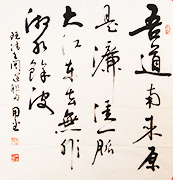 吾道南来原
是濂溪一脈
大江东去無非
湘水餘波